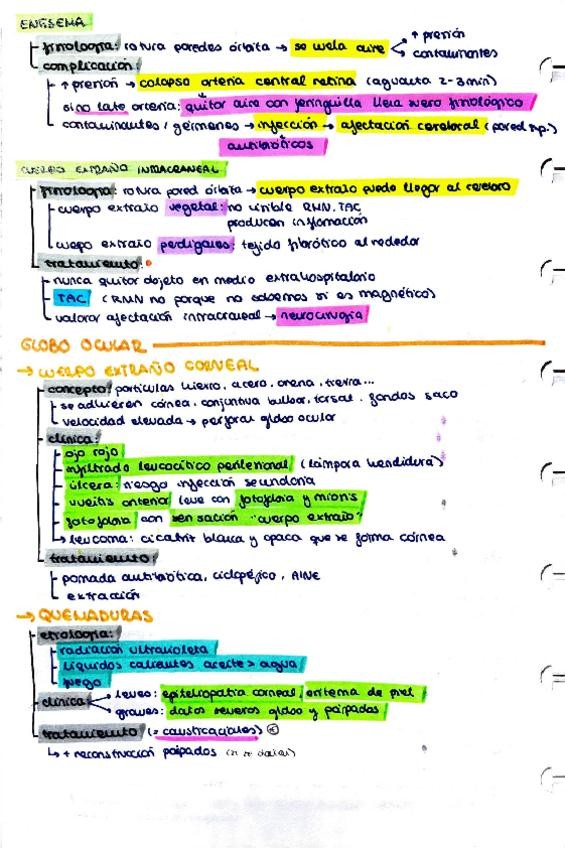 ENFISEMA
fisiología: rotura paredes órbita → se cuela aire < ↑ presión
contaminantes
complicación:
↑ presión → colapso arteria central retina (aguanta 2-3 min)
si no late arteria: quitar aire con jeringuilla llena suero fisiológico
contaminantes / gérmenes → infección → afectación cerebral (pared sup.)
antibióticos
CUERPO EXTRAÑO INTRACRANEAL
fisiología: rotura pared órbita → cuerpo extraño puede llegar al cerebro
cuerpo extraño vegetal: no visible RMN, TAC
producen inflamación
cuerpo extraño perdigones: tejido fibrótico alrededor
tratamiento:
nunca quitar objeto en medio extrahospitalario
TAC (RMN no porque no sabemos si es magnético)
valorar afectación intracraneal → neurocirugía
GLOBO OCULAR
→ CUERPO EXTRAÑO CORNEAL
concepto: partículas hierro, acero, arena, tierra...
se adhieren córnea, conjuntiva bulbar, tarsal, fondos saco
velocidad elevada → perforar globo ocular
clínica:
ojo rojo
infiltrado leucocítico perilesional (lámpara hendidura)
úlcera: riesgo infección secundaria
uveítis anterior leve con fotofobia y miosis
fotofobia con sensación "cuerpo extraño"
→ leucoma: cicatriz blanca y opaca que se forma córnea
tratamiento:
pomada antibiótica, ciclopéjico, AINE
extracción
→ QUEMADURAS
etiología:
radiación ultravioleta
líquidos calientes aceite > agua
fuego
clínica → leves: epiteliopatía corneal, eritema de piel
graves: datos severos globo y párpados
tratamiento (= causticaciones)
↳ + reconstrucción párpados